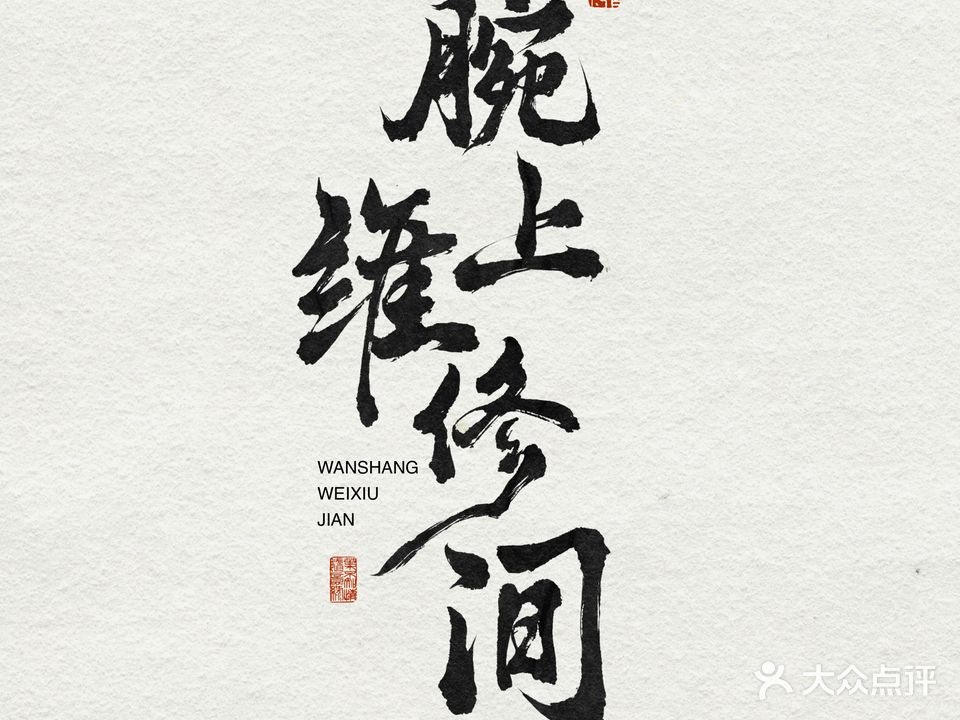 腕上维修间
WANSHANG
WEIXIU
JIAN
大众点评